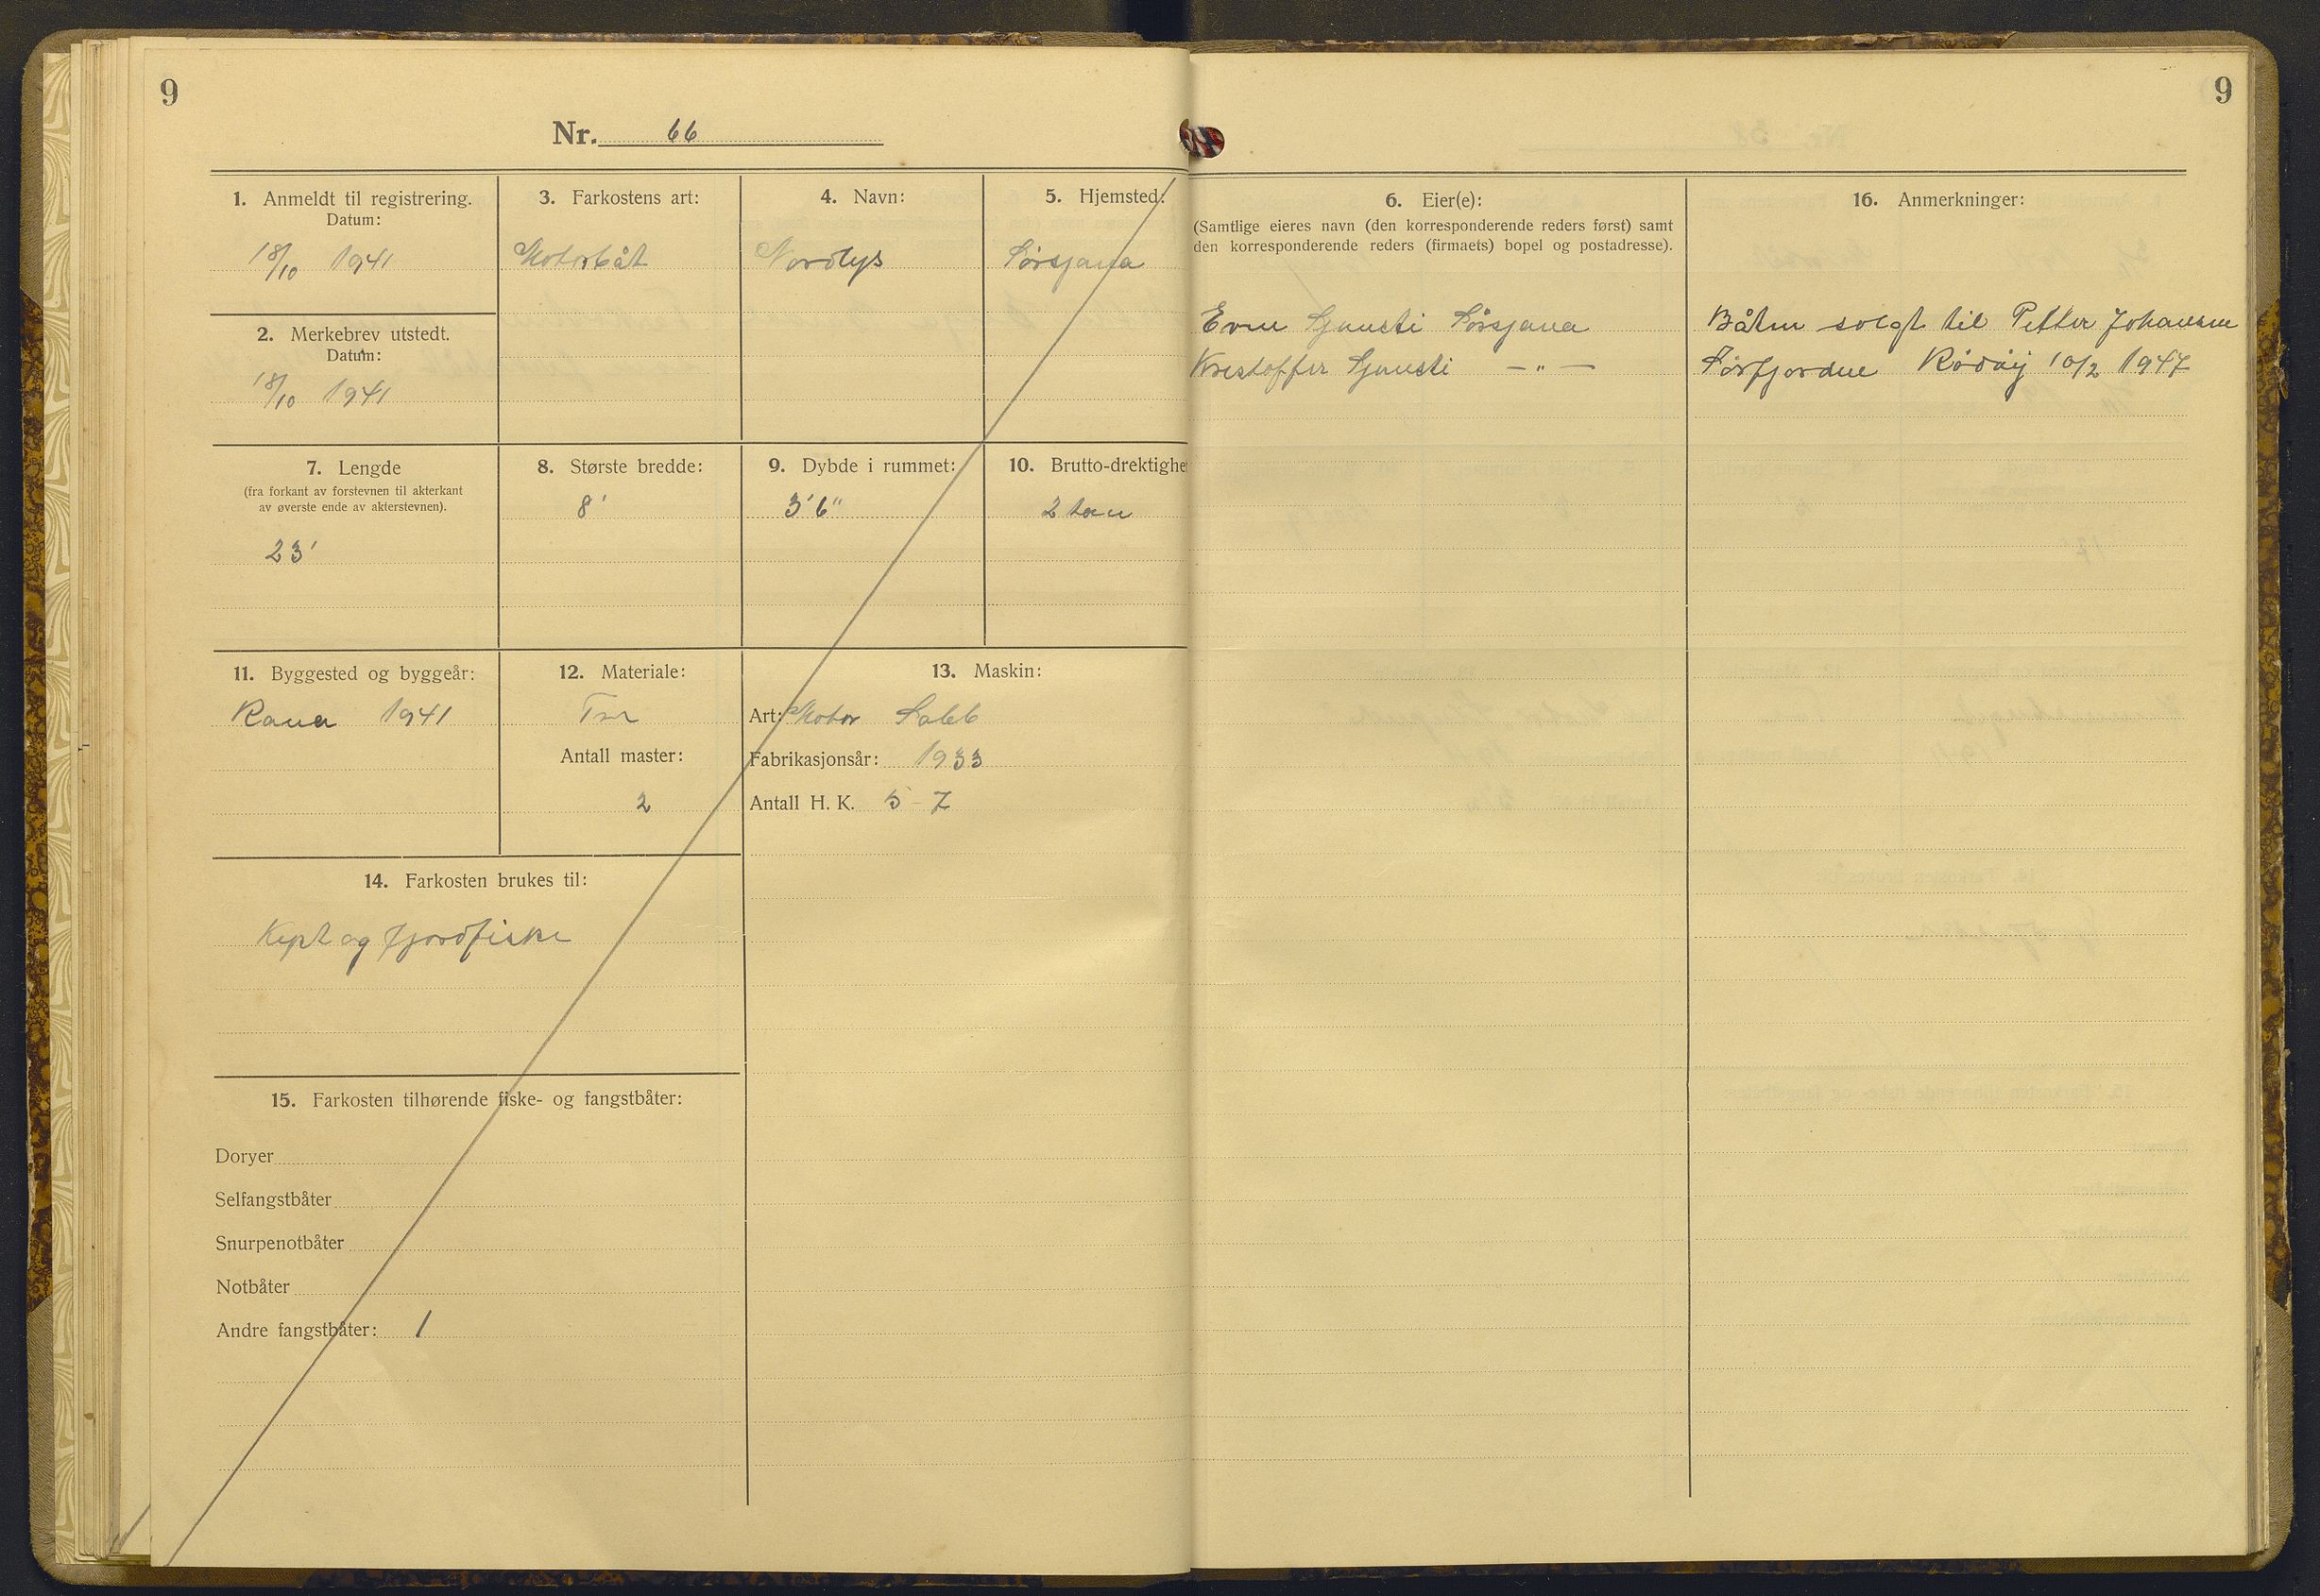 9
Nr. 66
1. Anmeldt til registrering.
Datum:
18/10 1941
2. Merkebrev utstedt.
Datum:
18/10 1941
3. Farkostens art:
Motorbåt
4. Navn:
Nordlys
5. Hjemsted:
Sørsjona
7. Lengde
(fra forkant av forstevnen til akterkant
av øverste ende av akterstevnen).
23'
8. Største bredde:
8'
9. Dybde i rummet:
3'6"
10. Brutto-drektighe
2 ton
11. Byggested og byggeår:
Rana 1941
12. Materiale:
Tre
Antall master:
2
13. Maskin:
Art: Motor Sabb
Fabrikasjonsår: 1933
Antall H. K. 5-7
14. Farkosten brukes til:
Kyst og fjordfiske
15. Farkosten tilhørende fiske- og fangstbåter:
Doryer
Selfangstbåter
Snurpenotbåter
Notbåter
Andre fangstbåter: 1
9
6. Eier(e):
(Samtlige eieres navn (den korresponderende reders først) samt
den korresponderende reders (firmaets) bopel og postadresse).
Sørsjona
Kristoffer — " —
16. Anmerkninger:
Båten solgt til Petter Johansen
Sørfjorden Rødøy 10/2 1947